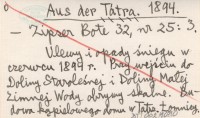 Aus der Tatra. 1894.
– Zipser Bote 32, nr 25: 3.
Ulewy i opady śniegu w
czerwcu 1894 r. Przy wejściu do
Doliny Staroleśnej i Doliny Małej
Zimnej Wody obrywy skalne. Bu-
dowa kąpielowego domu w Tatrz. Łomnicy.